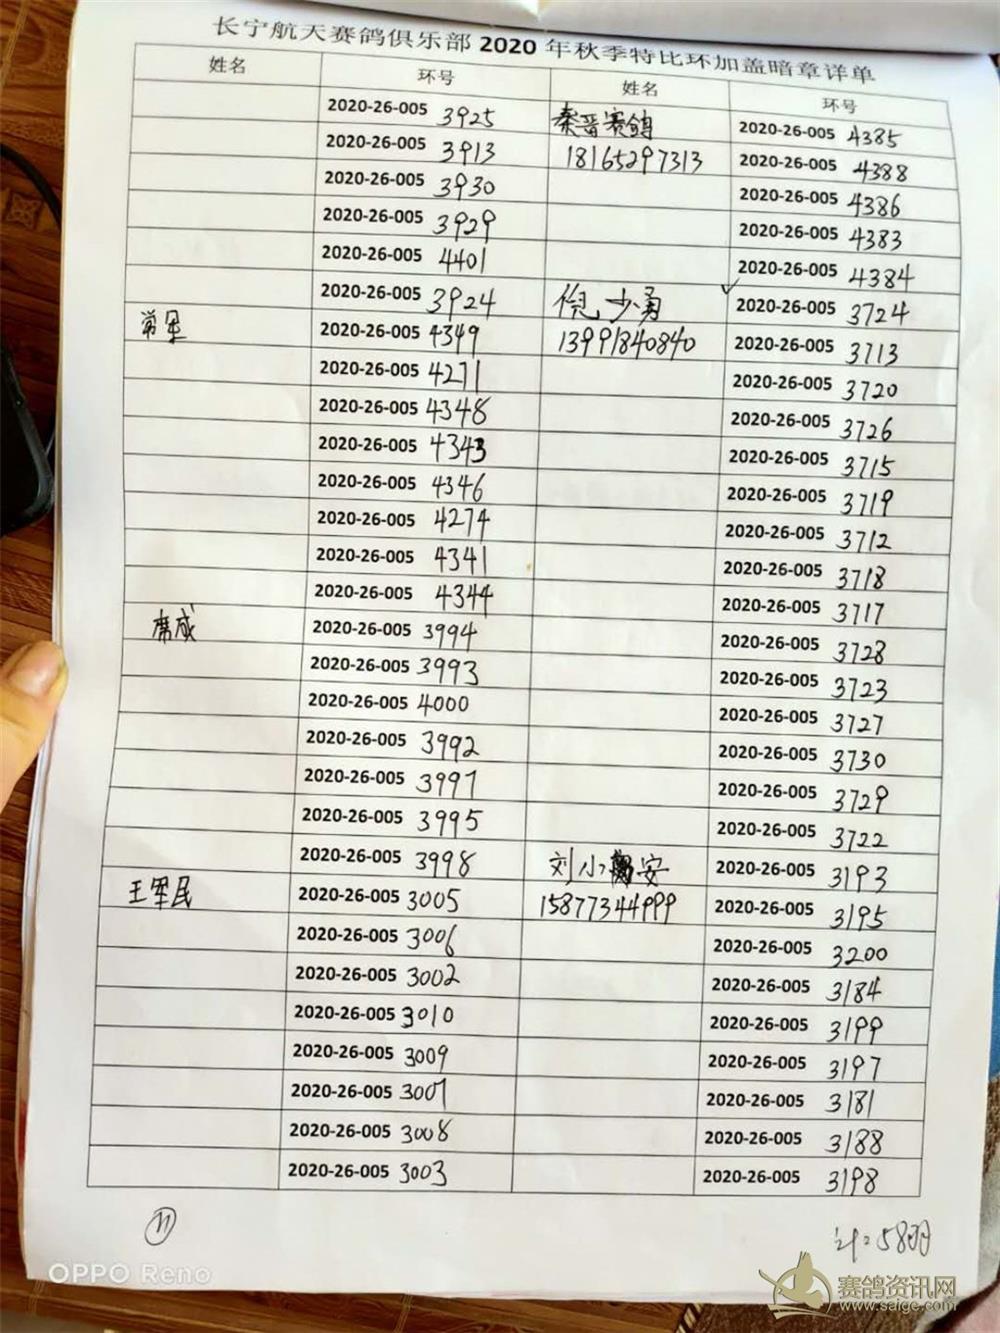 长宁航天赛鸽俱乐部 2020 年秋季特比环加盖暗章详单
姓名 环号 姓名 环号
2020-26-005 3925 秦晋赛鸽 2020-26-005 4385
2020-26-005 3913 18165297313 2020-26-005 4388
2020-26-005 3930 2020-26-005 4386
2020-26-005 3929 2020-26-005 4383
2020-26-005 4401 2020-26-005 4384
2020-26-005 3924 倪少勇 2020-26-005 3724
常军 2020-26-005 4349 13991840840 2020-26-005 3713
2020-26-005 4271 2020-26-005 3720
2020-26-005 4348 2020-26-005 3726
2020-26-005 4343 2020-26-005 3715
2020-26-005 4346 2020-26-005 3719
2020-26-005 4274 2020-26-005 3712
2020-26-005 4341 2020-26-005 3718
2020-26-005 4344 2020-26-005 3717
席成 2020-26-005 3994 2020-26-005 3728
2020-26-005 3993 2020-26-005 3723
2020-26-005 4000 2020-26-005 3727
2020-26-005 3992 2020-26-005 3730
2020-26-005 3997 2020-26-005 3729
2020-26-005 3995 2020-26-005 3722
2020-26-005 3998 刘小安 2020-26-005 3193
王军民 2020-26-005 3005 15877344999 2020-26-005 3195
2020-26-005 3006 2020-26-005 3200
2020-26-005 3002 2020-26-005 3184
2020-26-005 3010 2020-26-005 3199
2020-26-005 3009 2020-26-005 3197
2020-26-005 3007 2020-26-005 3181
2020-26-005 3008 2020-26-005 3188
2020-26-005 3003 2020-26-005 3198
11
计:58羽
OPPO Reno
赛鸽资讯网
www.saige.com